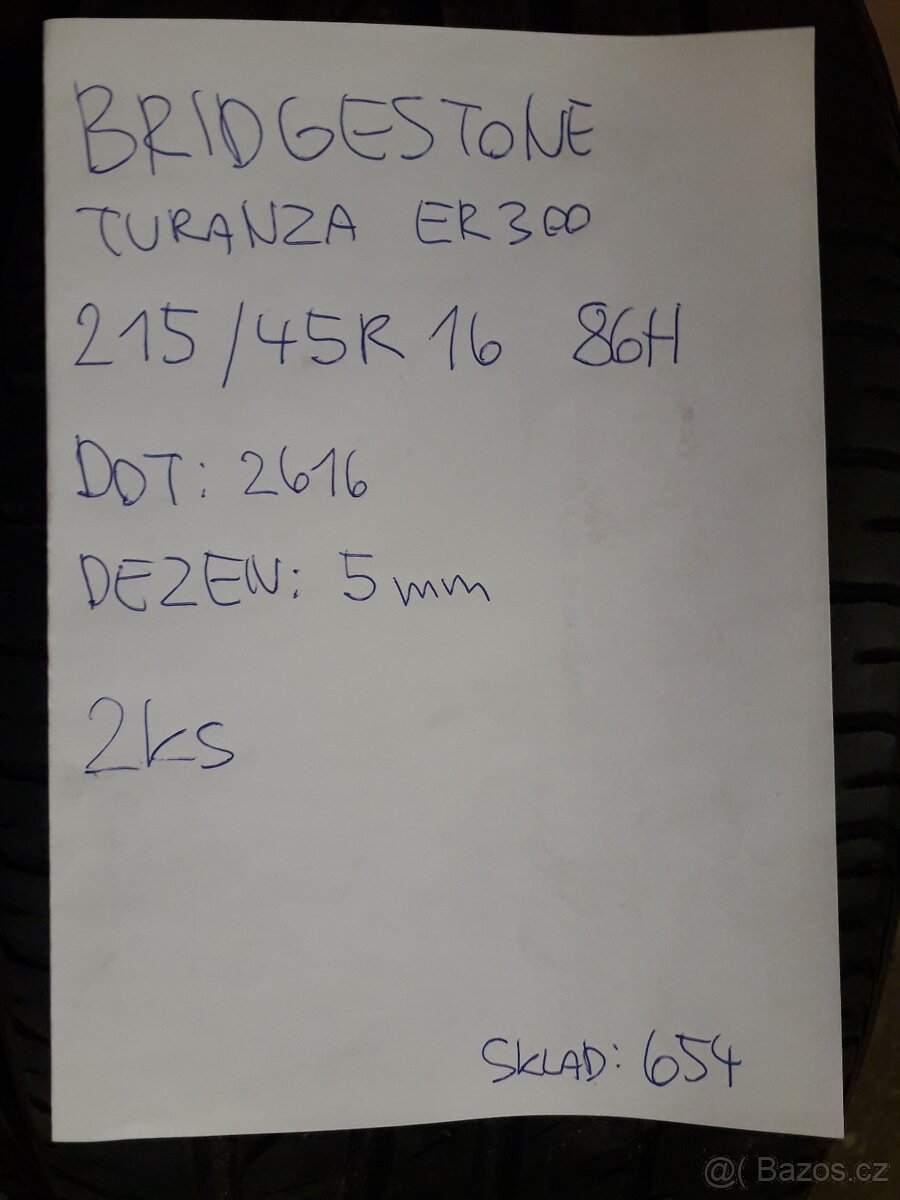 BRIDGESTONE
TURANZA ER300
215/45R 16 86H
DOT: 2616
DEZEN: 5mm
2ks
SKLAD: 654
@( Bazos.cz